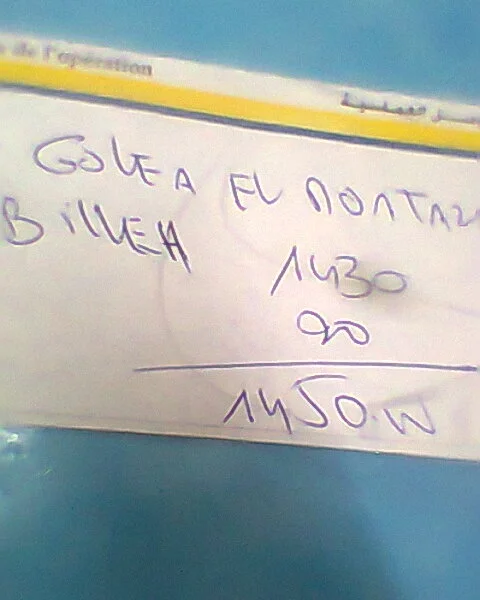 de l'opération
GOLEA EL MONTAZ
BillEH
1430
20
1450.W